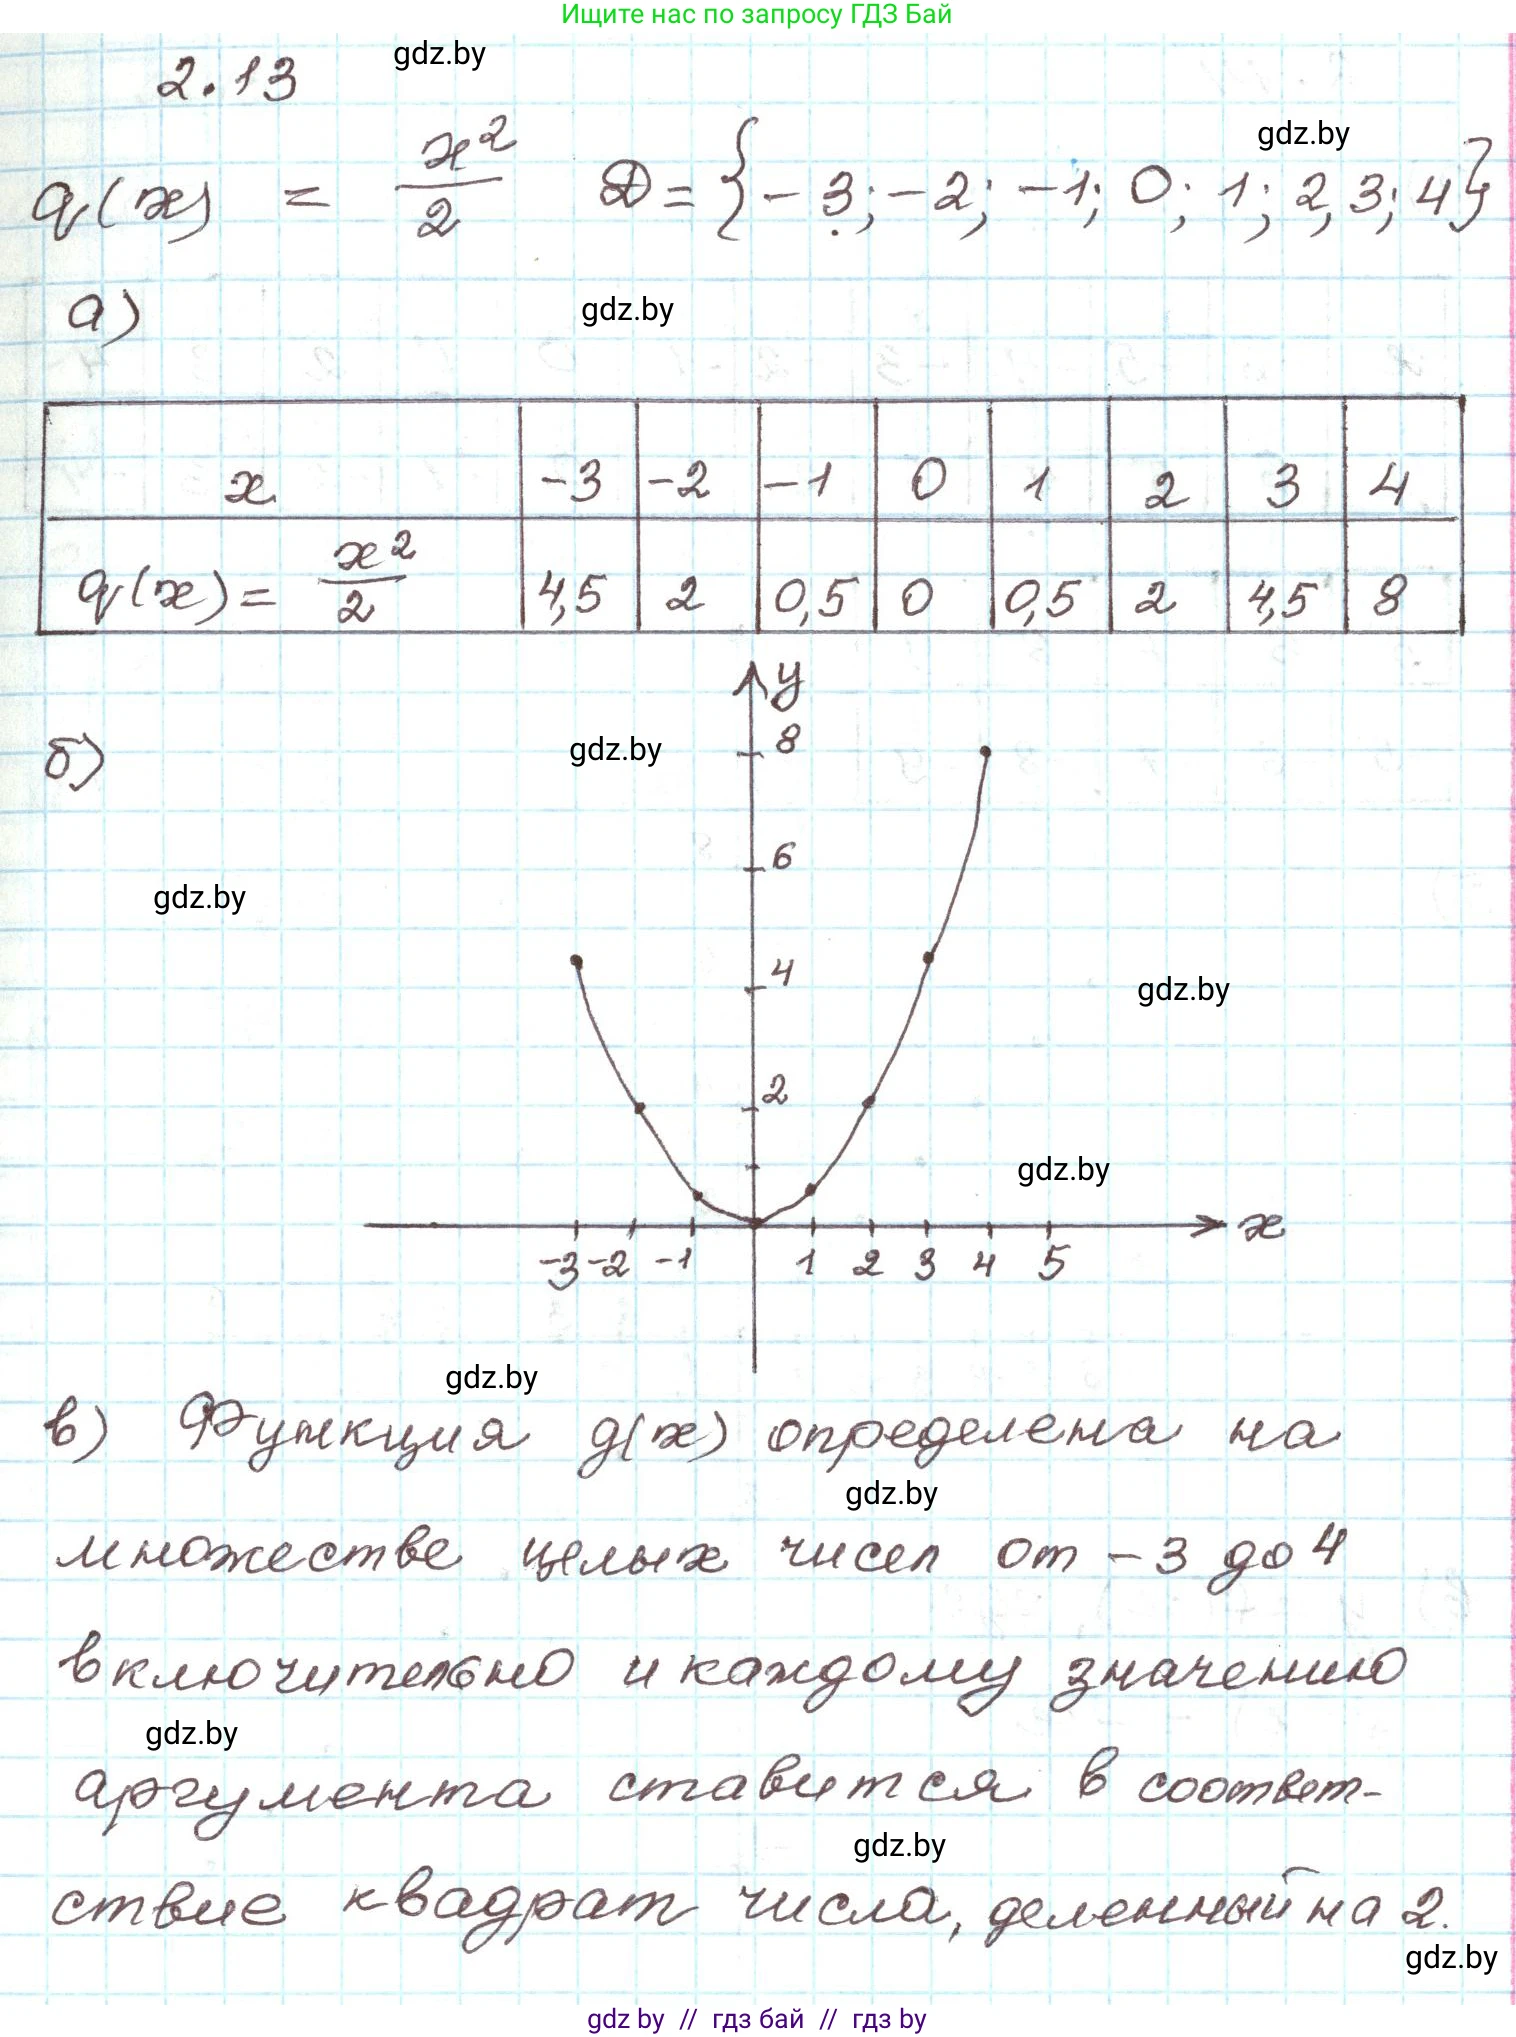 Ищите нас по запросу ГДЗ Бай
gdz.by
2.13
gdz.by
q(x) = x²/2 D = {-3; -2; -1; 0; 1; 2, 3; 4}
а)
gdz.by
x -3 -2 -1 0 1 2 3 4
q(x) = x²/2 4,5 2 0,5 0 0,5 2 4,5 8
y
б)
gdz.by
8
6
gdz.by
4
gdz.by
2
gdz.by
x
-3 -2 -1 1 2 3 4 5
gdz.by
в) Функция g(x) определена на
gdz.by
множестве целых чисел от -3 до 4
включительно и каждому значению
gdz.by
аргумента ставится в соответ-
gdz.by
ствие квадрат числа, деленный на 2.
gdz.by
gdz by // гдз бай // гдз by